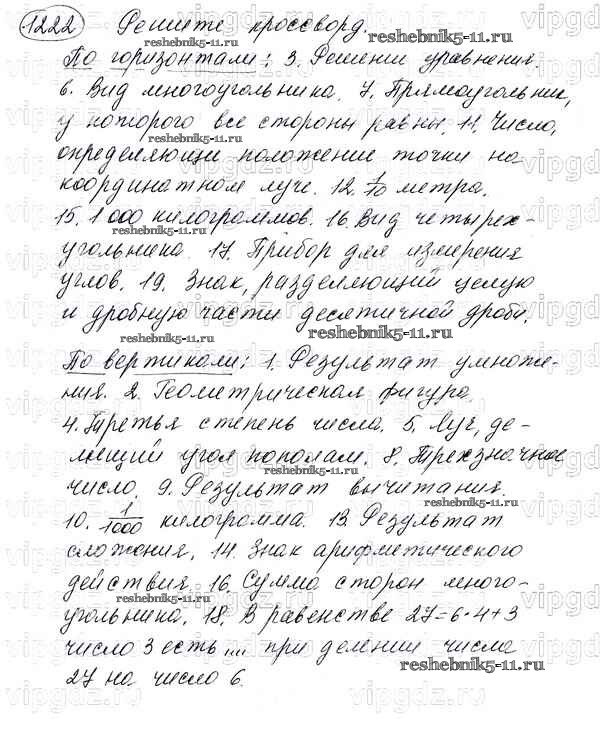 1222 Решите кроссворд.
По горизонтали: 3. Решение уравнения.
6. Вид многоугольника. 7. Прямоугольник,
у которого все стороны равны. 11. Число,
определяющее положение точки на
координатном луче. 12. 1/10 метра.
15. 1 000 килограммов. 16. Вид четырех-
угольника. 17. Прибор для измерения
углов. 19. Знак, разделяющий целую
и дробную части десятичной дроби.
По вертикали: 1. Результат умноже-
ния. 2. Геометрическая фигура.
4. Третья степень числа. 5. Луч, де-
лящий угол пополам. 8. Трехзначное
число. 9. Результат вычитания.
10. 1/1000 килограмма. 13. Результат
сложения. 14. Знак арифметического
действия. 16. Сумма сторон много-
угольника. 18. В равенстве 27=6·4+3
число 3 есть .... при делении числа
27 на число 6.
reshebnik5-11.ru
reshebnik5-11.ru
reshebnik5-11.ru
reshebnik5-11.ru
reshebnik5-11.ru
reshebnik5-11.ru
reshebnik5-11.ru
reshebnik5-11.ru
reshebnik5-11.ru